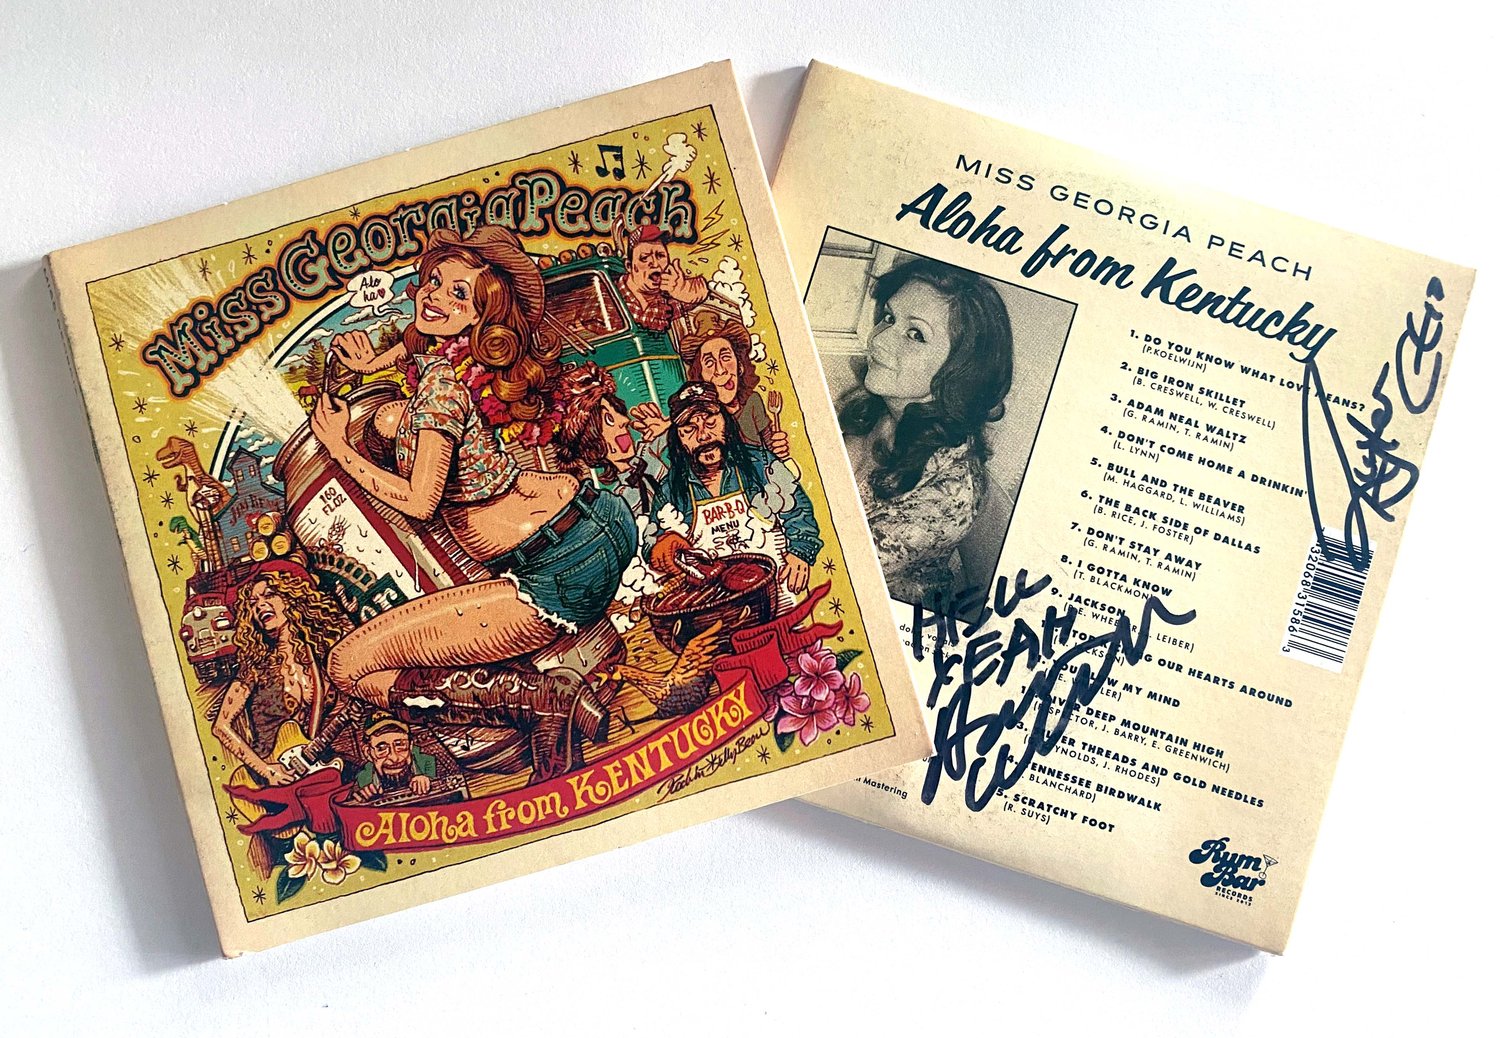 Miss Georgia Peach
Alo
ha
160
FL OZ
JIM BEAM
BAR-B-Q
MENU
Aloha from KENTUCKY
MISS GEORGIA PEACH
Aloha from Kentucky
1. DO YOU KNOW WHAT LOVE MEANS?
(P.KOELWIJN)
2. BIG IRON SKILLET
(B. CRESWELL, W. CRESWELL)
3. ADAM NEAL WALTZ
(G. RAMIN, T. RAMIN)
4. DON'T COME HOME A DRINKIN'
(L. LYNN)
5. BULL AND THE BEAVER
(M. HAGGARD, L. WILLIAMS)
6. THE BACK SIDE OF DALLAS
(B. RICE, J. FOSTER)
7. DON'T STAY AWAY
(G. RAMIN, T. RAMIN)
8. I GOTTA KNOW
(T. BLACKMON)
9. JACKSON
LEIBER)
OUR HEARTS AROUND
MY MIND
DEEP MOUNTAIN HIGH
SPECTOR, J. BARRY, E. GREENWICH)
THREADS AND GOLD NEEDLES
J. RHODES)
TENNESSEE BIRDWALK
BLANCHARD)
SCRATCHY FOOT
(R. SUYS)
HELL
YEAH
Mastering
32068 31586 3
Rum
Bar
RECORDS
SINCE 2017